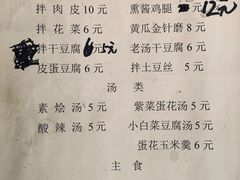 拌肉皮10元 熏酱鸡腿 12元
拌花菜6元 黄瓜金针磨8元
拌干豆腐6元5元 老汤干豆腐6元
皮蛋豆腐6元 拌土豆丝 5元
汤 类
素烩汤5元 紫菜蛋花汤5元
酸辣汤5元 小白菜豆腐汤5元
蛋花玉米羹6元
主 食